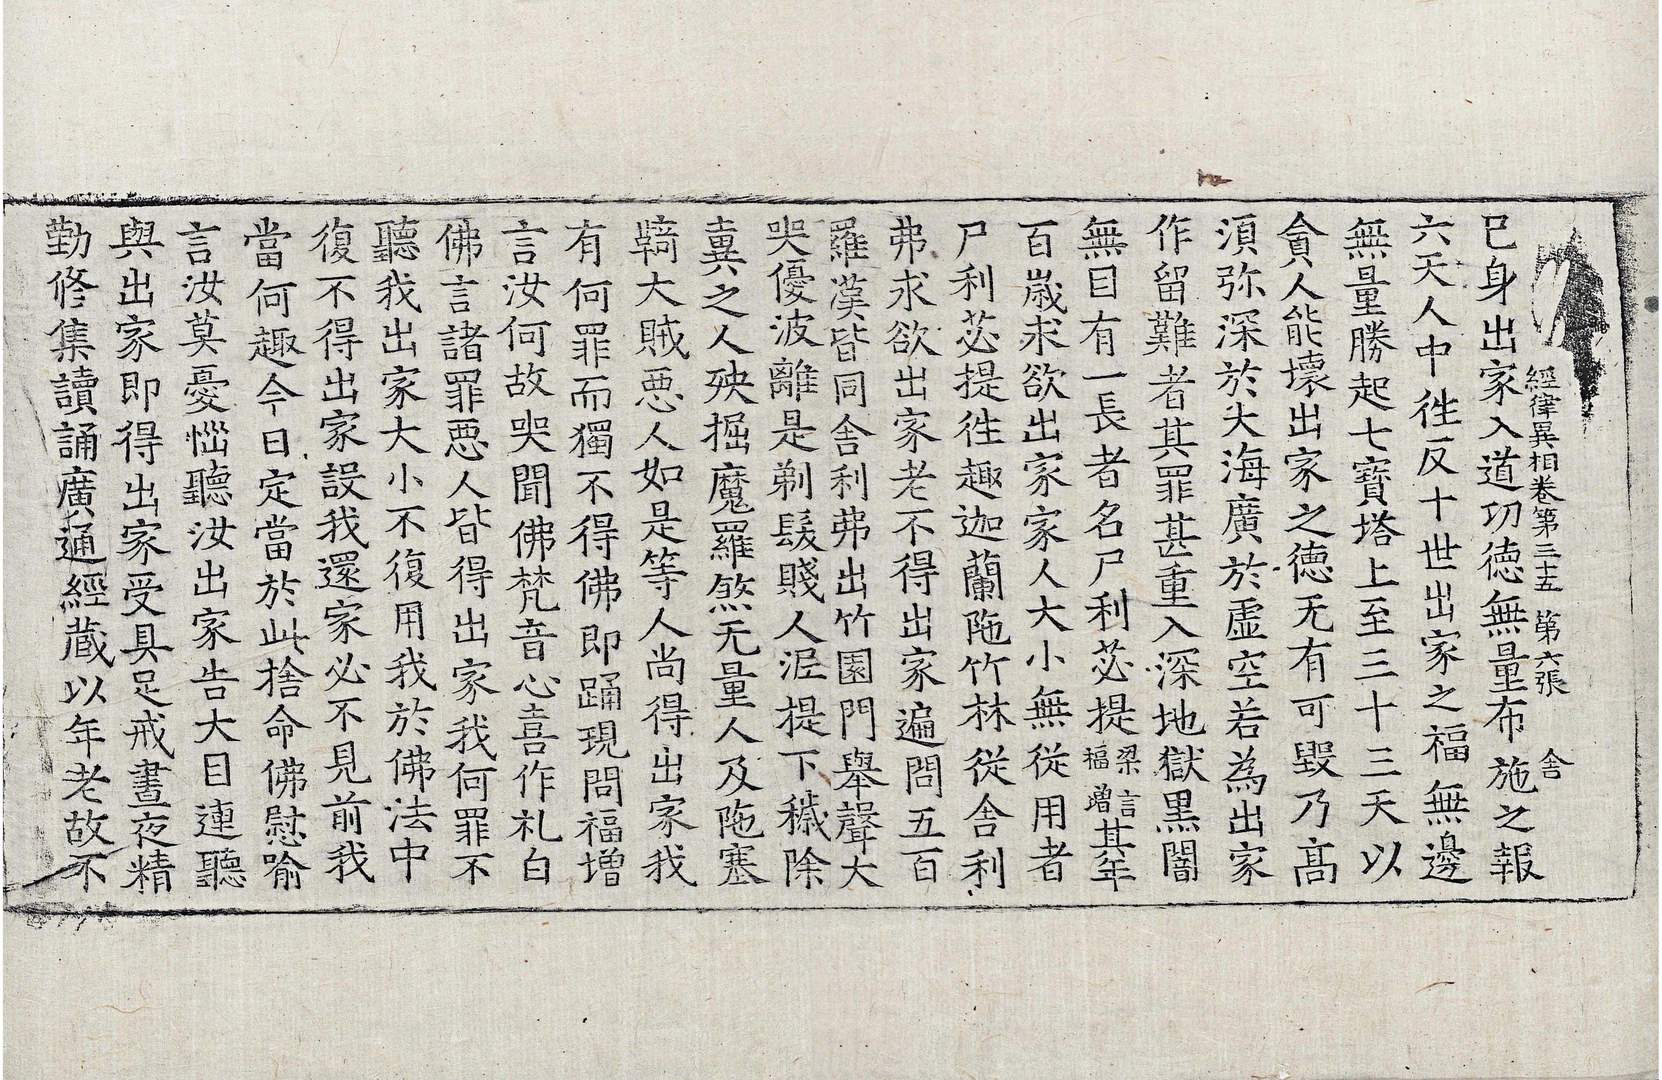 經律異相卷第三十五 第六張 舍
已身出家入道功徳無量布施之報
六天人中徃反十世出家之福無邊
無量勝起七寶塔上至三十三天以
貪人能壞出家之徳无有可毀乃髙
湏弥深於大海廣於虛空若為出家
作留難者其罪甚重入深地獄黒闇
無目有一長者名尸利苾提梁言福増其年
百歳求欲出家家人大小無從用者
尸利苾提徃趣迦蘭陁竹林從舍利
弗求欲出家老不得出家遍問五百
羅漢皆同舍利弗出竹園門舉聲大
哭優波離是剃髮賤人泥提下穢除
糞之人殃掘魔羅煞无量人及陁塞
䩭大賊惡人如是等人尚得出家我
有何罪而獨不得佛即踊現問福増
言汝何故哭聞佛梵音心喜作礼白
佛言諸罪惡人皆得出家我何罪不
聽我出家大小不復用我於佛法中
復不得出家設我還家必不見前我
當何趣今日定當於此捨命佛慰喻
言汝莫憂惱聽汝出家告大目連聽
與出家即得出家受具足戒晝夜精
勤修集讀誦廣通經蔵以年老故不